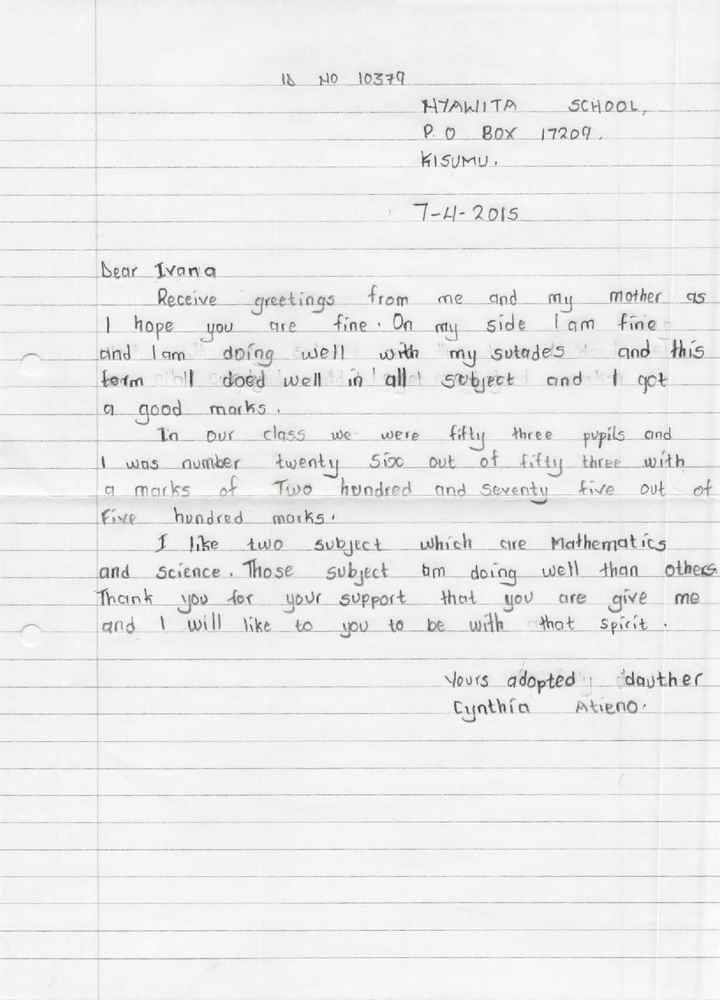 ID NO 10379
NYAWITA SCHOOL,
P.O BOX 17209.
KISUMU.
7-4-2015
Dear Ivana
Receive greetings from me and my mother as
I hope you are fine. On my side I am fine
and I am doing well with my sutades and this
term I doed well in all subject and I got
a good marks.
In our class we were fifty three pupils and
I was number twenty six out of fifty three with
a marks of Two hundred and seventy five out of
Five hundred marks.
I like two subject which are Mathematics
and science. Those subject am doing well than others.
Thank you for your support that you are give me
and I will like to you to be with that spirit.
Yours adopted dauther
Cynthia Atieno.